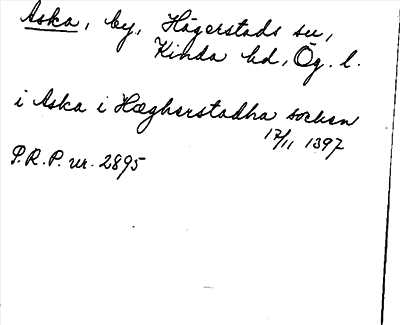 Aska, by, Hägerstads sn,
Kinda hd, Ög. l.
i Aska i Hægherstadha socken
17/11 1397
P.R.P. nr. 2895